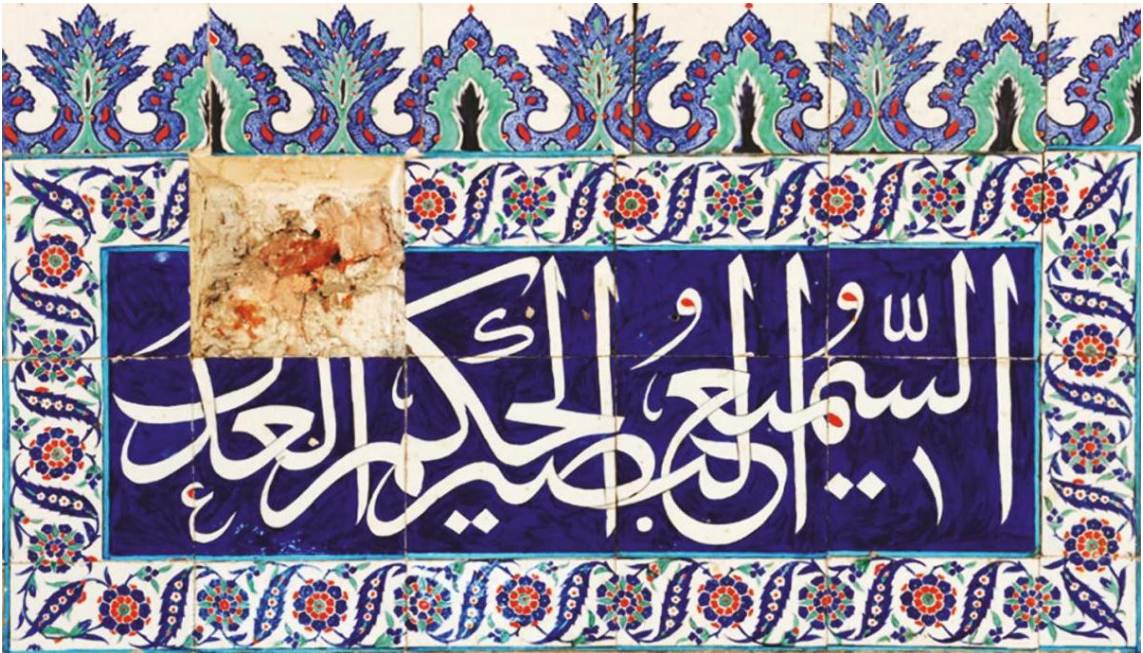 السميع البصير الحكم العدل